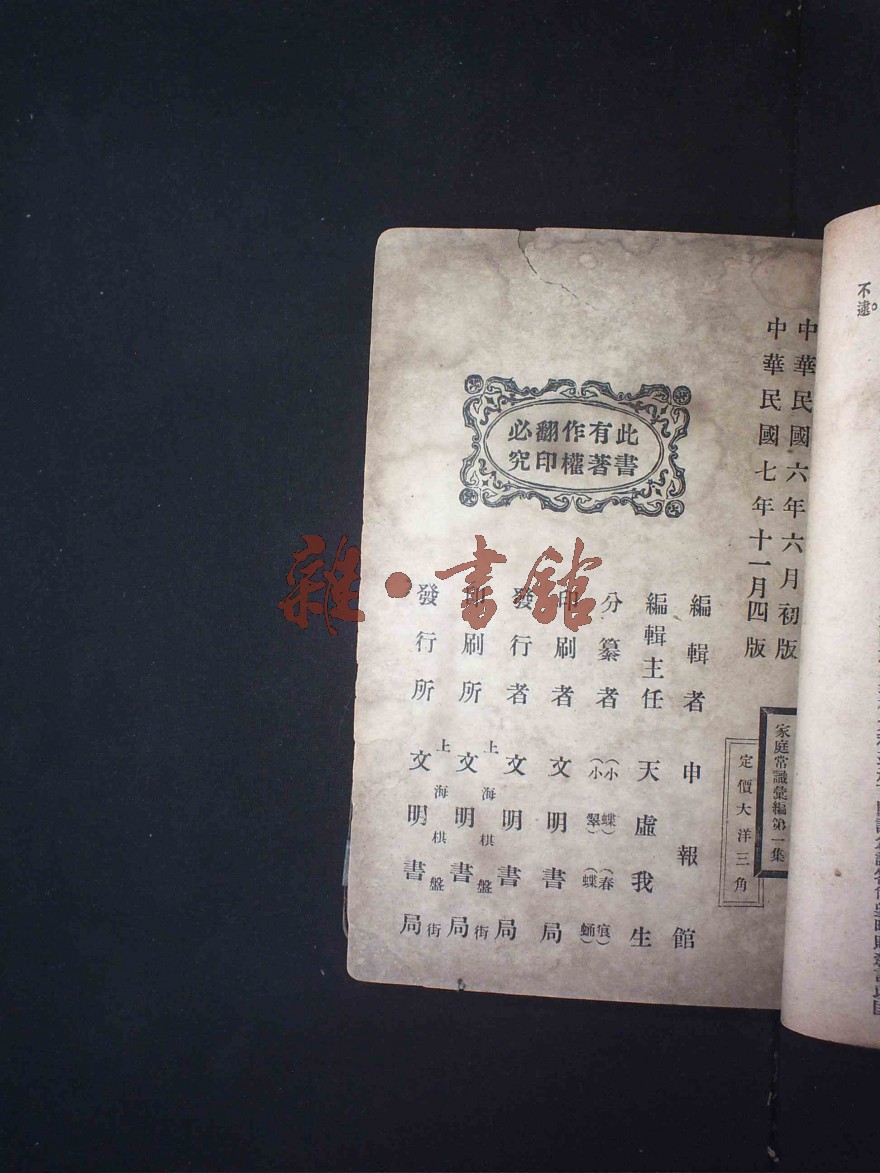 不逮。
中華民國六年六月初版
中華民國七年十一月四版
家庭常識彙編第一集
定價大洋三角
此書有著作權翻印必究
編輯者 申報館
編輯主任 天虛我生
分纂者 (小蝶) (春痕) (小翠) (蝶蛹)
印刷者 文明書局
發行者 文明書局
印刷所 上海棋盤街 文明書局
發行所 上海棋盤街 文明書局
雜·書館